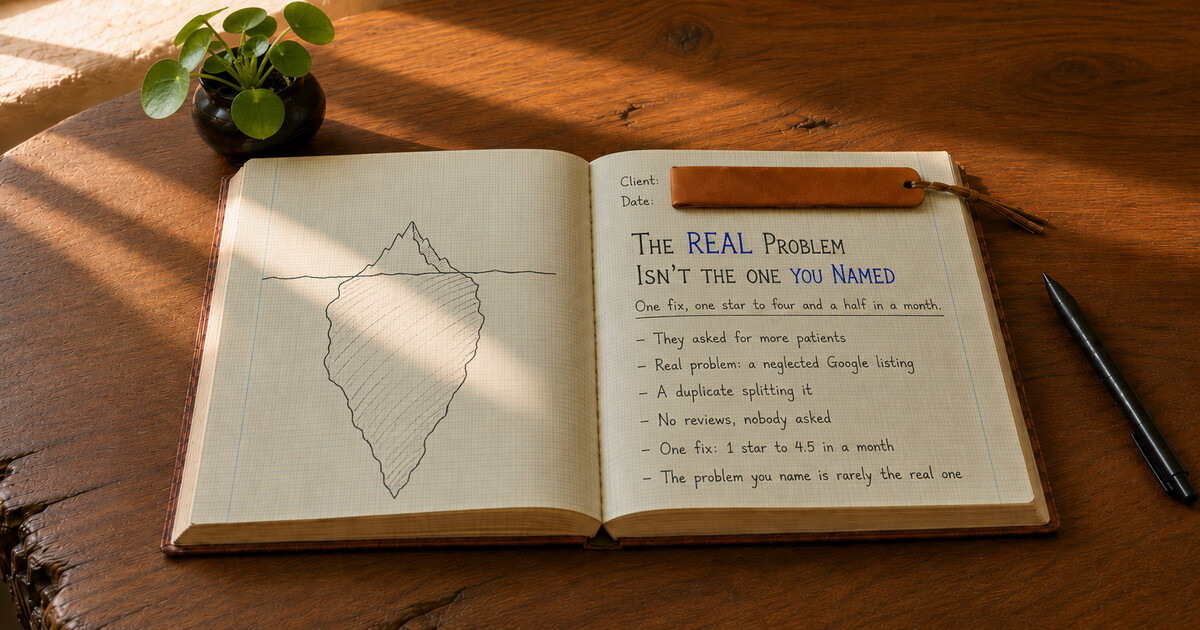 Client:
Date:
The REAL Problem
Isn't the one you Named
One fix, one star to four and a half in a month.
– They asked for more patients
– Real problem: a neglected Google listing
– A duplicate splitting it
– No reviews, nobody asked
– One fix: 1 star to 4.5 in a month
– The problem you name is rarely the real one